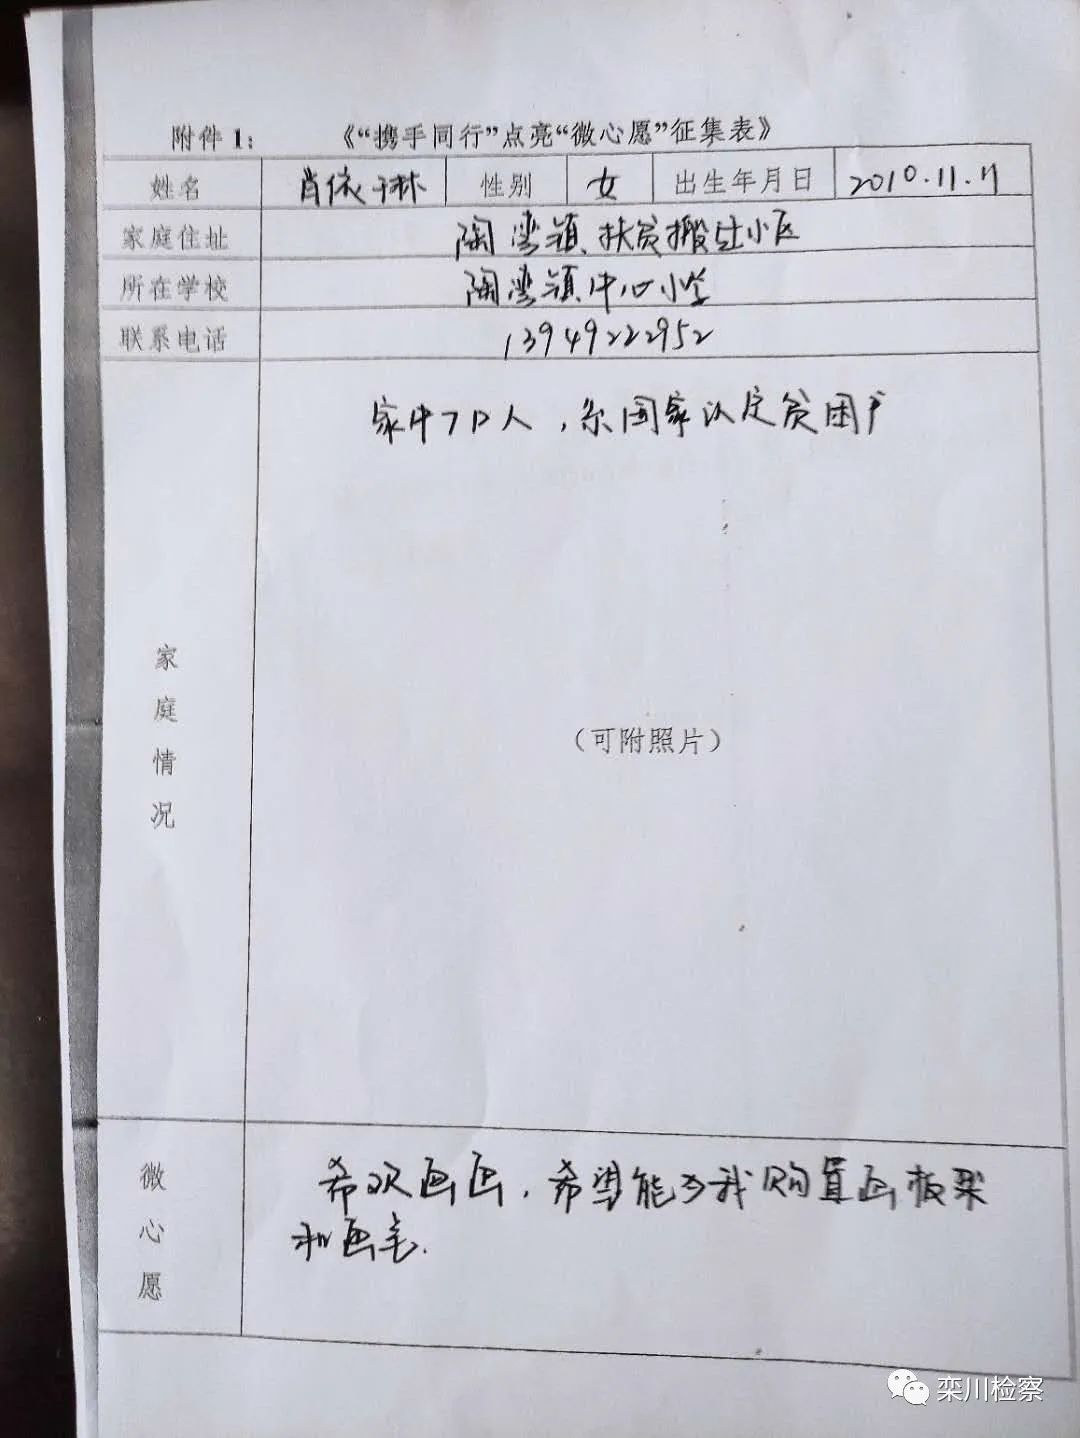 附件1： 《“携手同行”点亮“微心愿”征集表》
姓名 肖依琳 性别 女 出生年月日 2010.11.11
家庭住址 陶湾镇扶贫搬迁小区
所在学校 陶湾镇中心小学
联系电话 13949222952
家中7口人，系国家认定贫困户
家庭情况
（可附照片）
微心愿
喜欢画画，希望能为我购置画板架
和画笔.
栾川检察